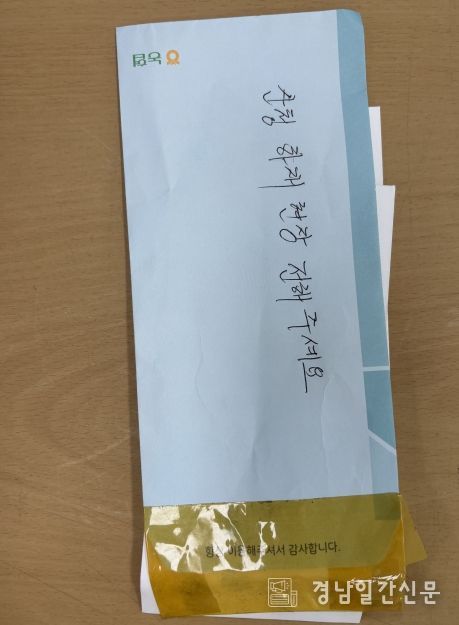 농협
산청 화재 현장 전해 주세요
이용해주셔서 감사합니다.
경남일간신문